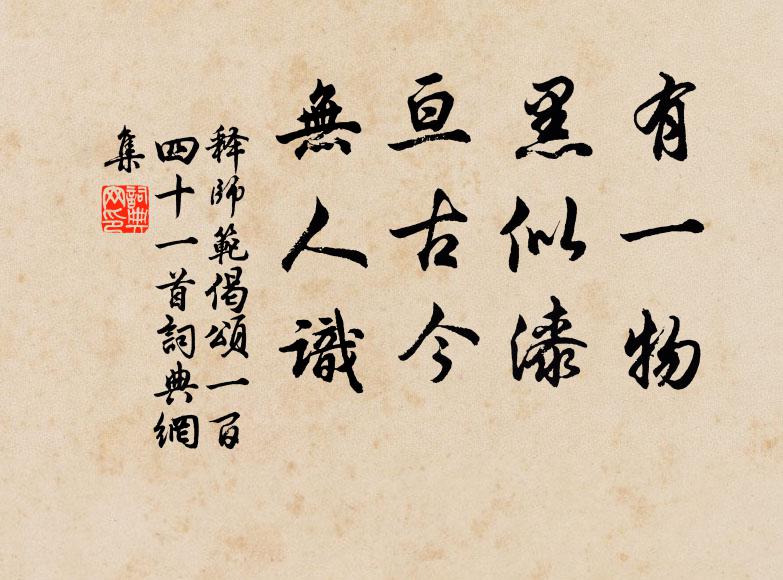 有一物
黑似漆
亘古今
無人識
释師範偈頌一百
四十一首詞典網
集
詞典
网印